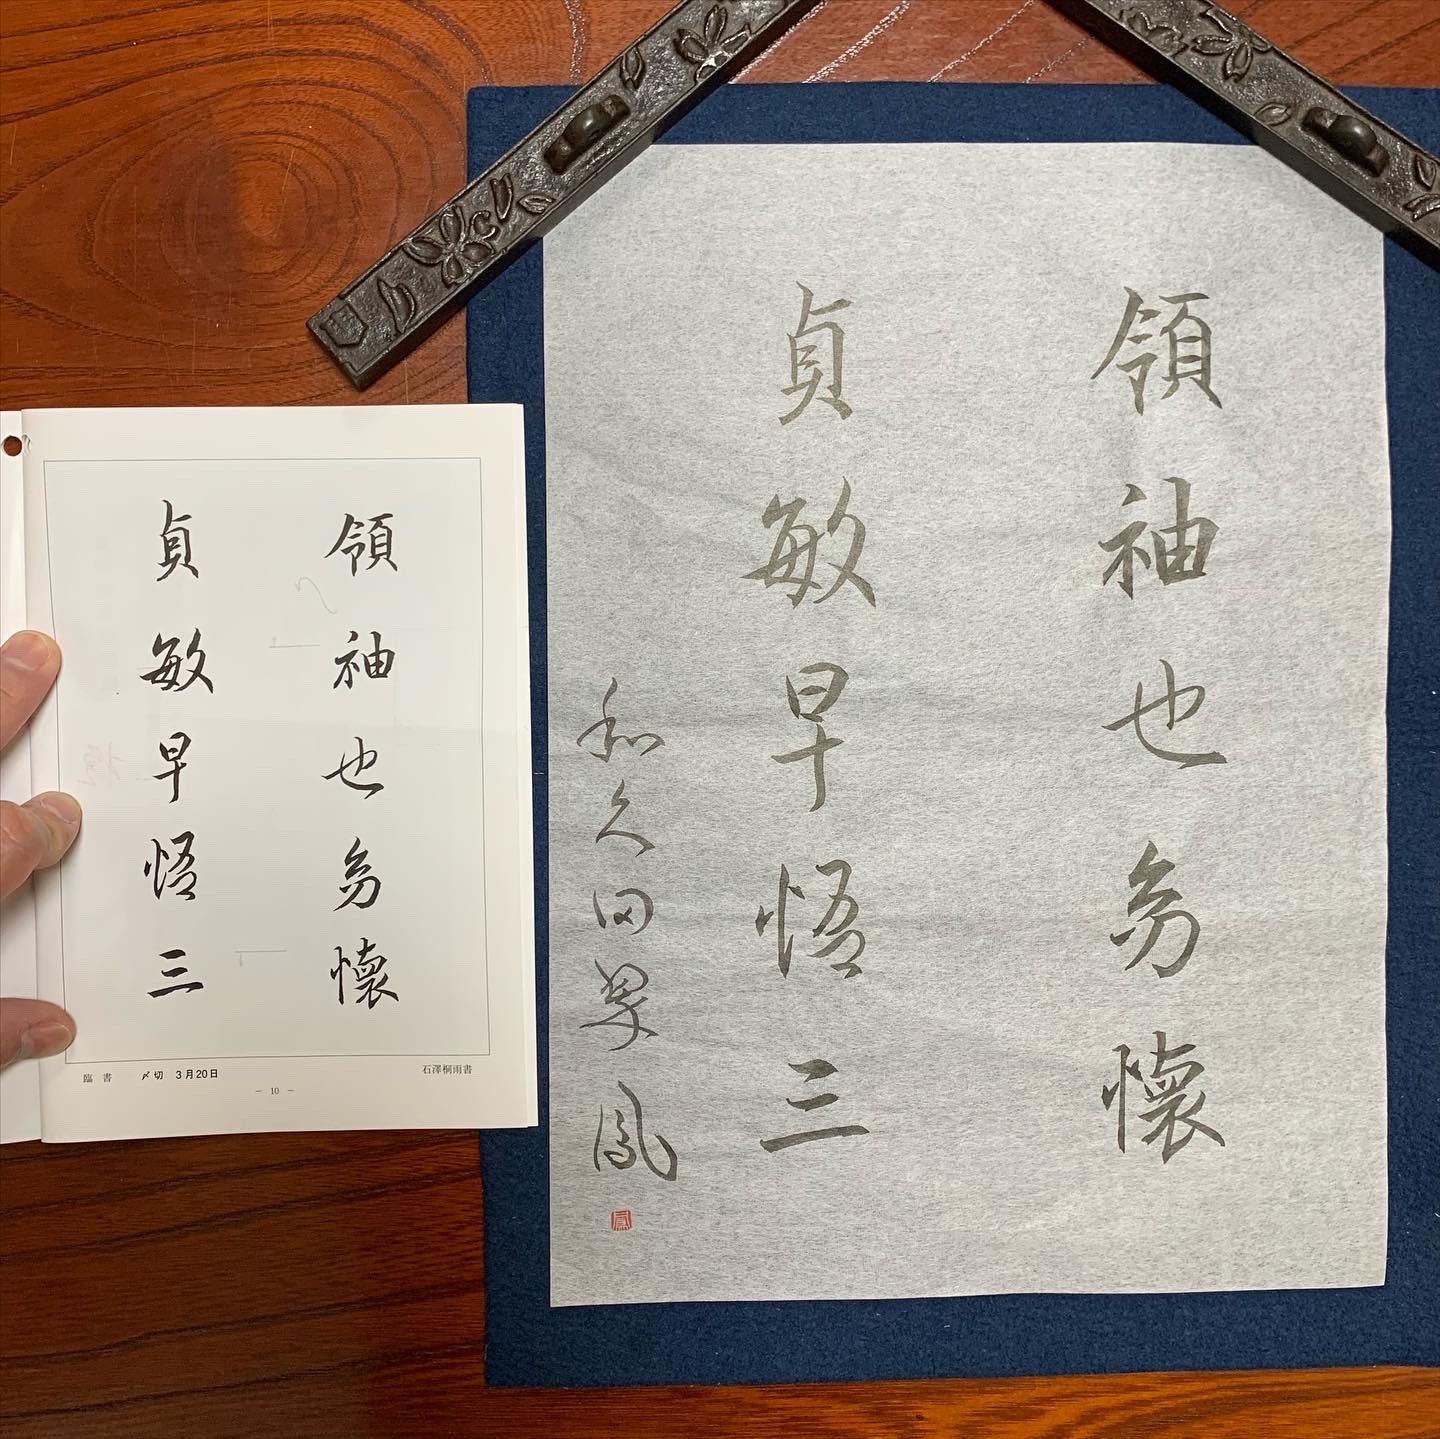 領袖也幼懐
貞敏早悟三
臨書 〆切 3月20日
石澤桐雨書
− 10 −
領袖也幼懐
貞敏早悟三
和久田翠鳳